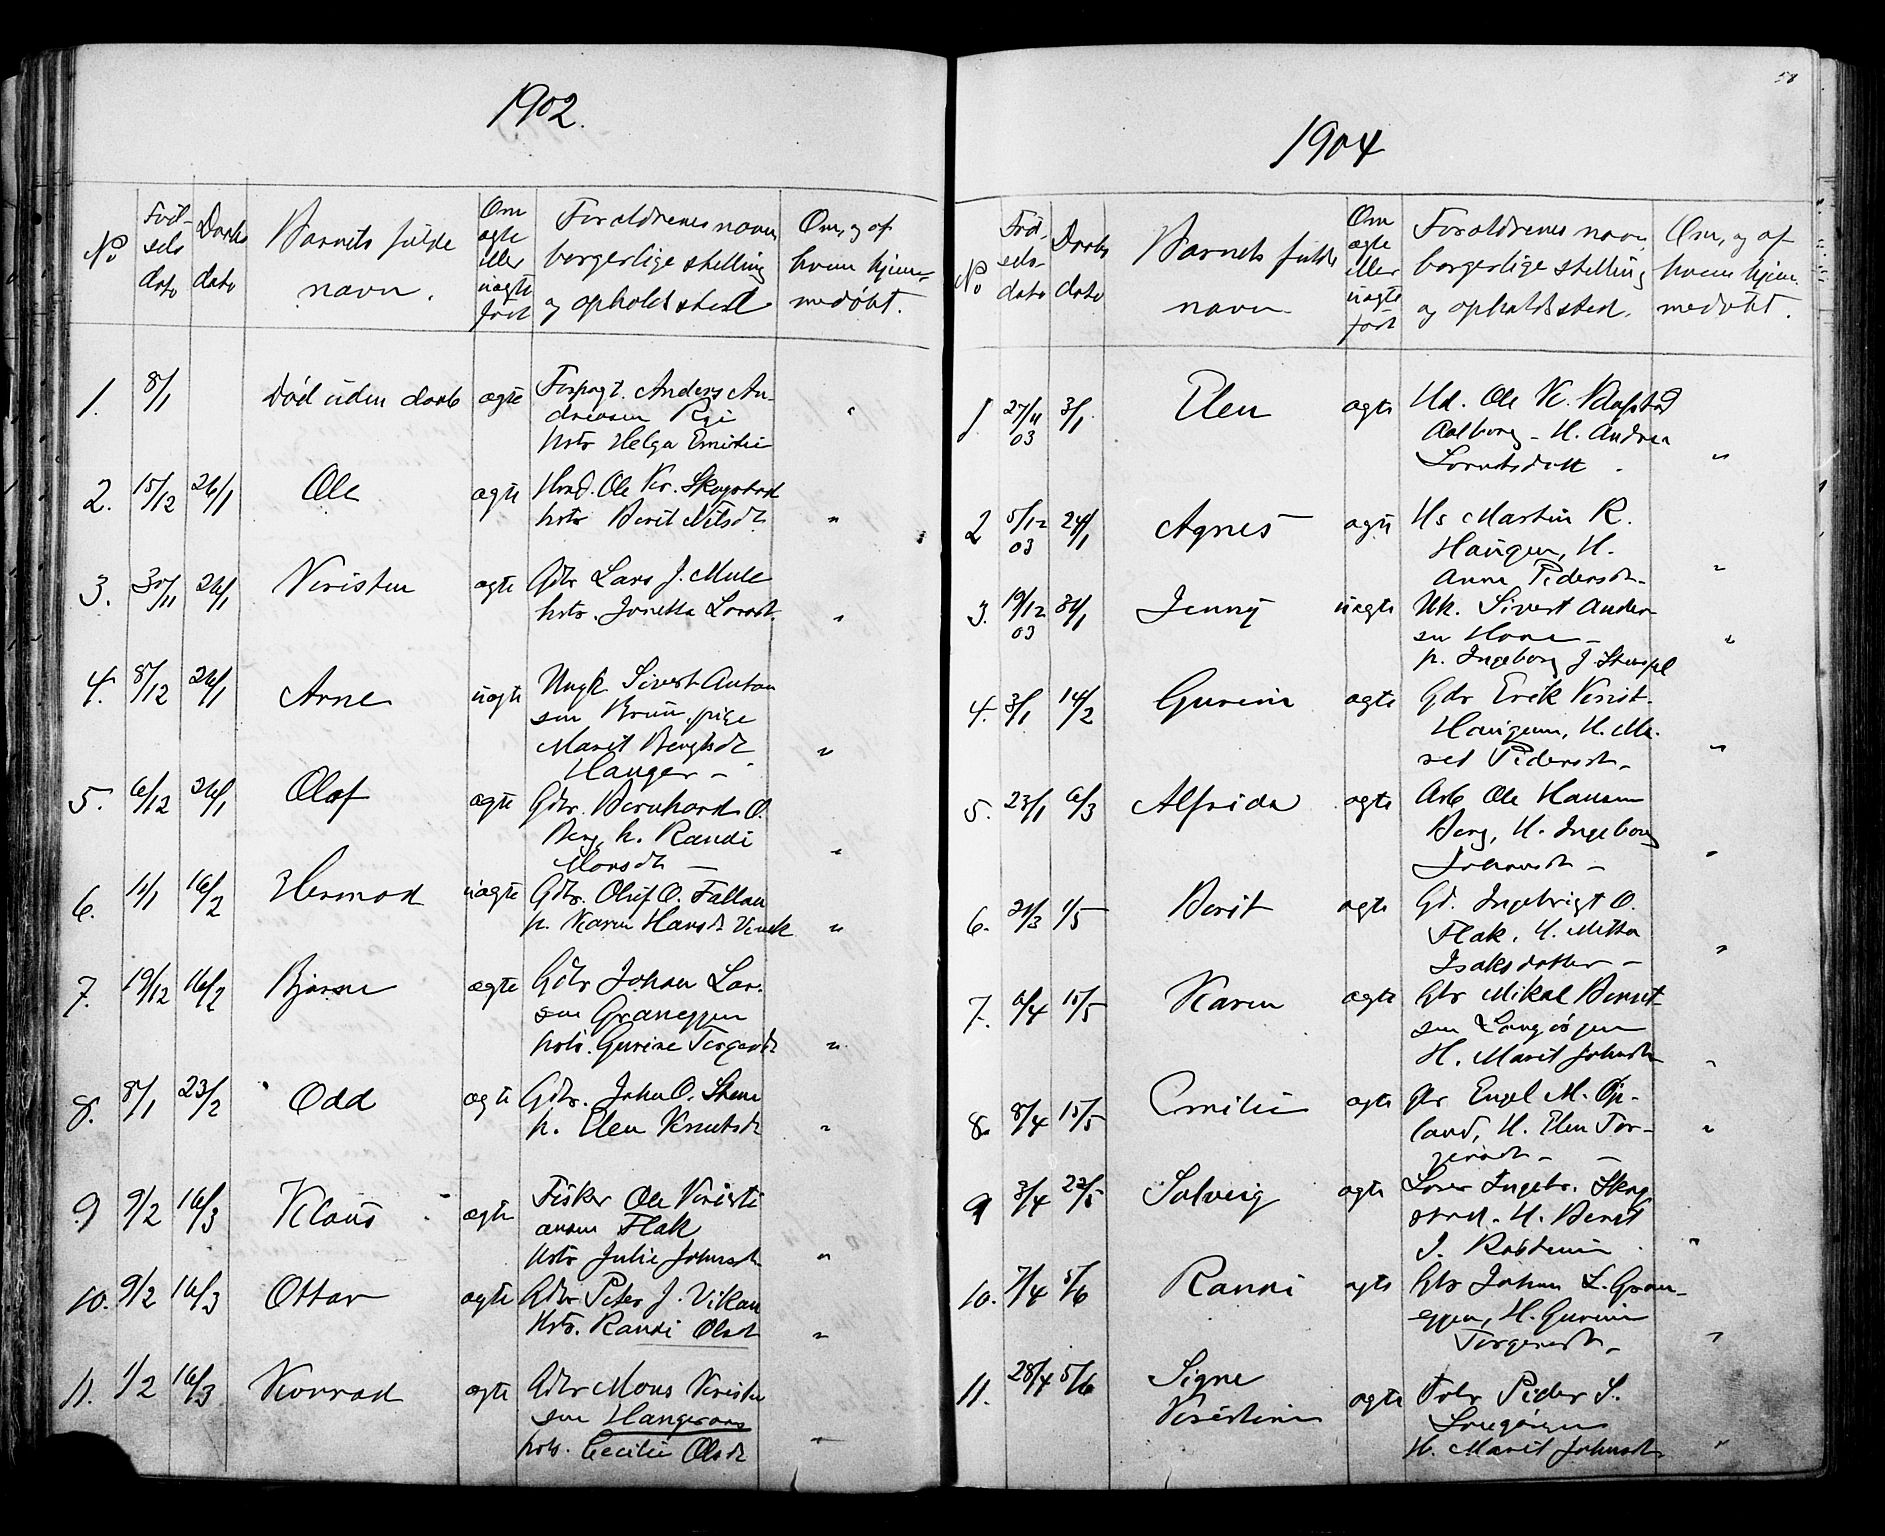 1902.
No
Fød-
sels
dato
Daabs
dato
Barnets fulde
navn.
Om
ægte
eller
uægte
født
Forældrenes navn,
borgerlige stilling
og opholdssted
Om, og af
hvem hjem-
medøbt.
1. 8/1 Død uden daab ægte Forpagt. Anders An-
dreasen Rye
hstr Helga Emilie "
2. 15/12 26/1 Ole ægte Hmd. Ole Kr. Skogstad
hstr Berit Nilsdt. "
3. 30/11 26/1 Kristen ægte Gdbr Lars J. Mule
hstr. Jonetta Larsdt. "
4. 8/12 26/1 Arne uægte Ungk. Sivert Anton
sen Bruu, pige
Marit Bengtsdt
Hanger - "
5. 6/12 26/1 Olaf ægte Gdbr. Bernhard O.
Berg, h. Randi
Monsdt - "
6. 11/1 16/2 Hermod uægte Gdbr. Oluf O. Fallan
p. Karen Hansdt "
7. 19/12 16/2 Bjarne ægte Gdbr Johan Lar.
sen Graneggen
hstr. Gurine Torgersdt "
8. 8/1 23/2 Odd ægte Gdbr. John O.
h. Elen Knutsdt "
9 9/2 16/3 Klaus ægte Fisker Ole Kristi
ansen Flak
Hstr Julie Johnsdt. "
10. 9/2 16/3 Ottar ægte Gdbr Peter J. Vikan
Hstr. Randi Olsdt "
11. 1/2 16/3 Konrad ægte Gdbr Mons Kristen
sen Hangeraas
hstr. Cecilie Olsdt "
58
1904
No
Fød-
sels-
dato
Daabs
dato
Barnets fulde
navn.
Om
ægte
eller
uægte
født
Forældrenes navn,
borgerlige stilling
og opholdssted.
Om, og af
hvem hjem.
medøbt.
1 27/11 03 3/1 Elen ægte Hd. Ole K. Klefstad
Aalberg - H. Andrea
Lorntsdatt. "
2 5/12 03 24/1 Agnes ægte Hs Martin R.
Haugen, H.
Anna Pedersdt- "
3. 19/12 03 31/1 Jenny uægte Uk. Sivert Ander-
sen -
p. Ingeborg J "
4. 3/1 14/2 Gurine ægte Gdr Erik Krist-
Haugum, H. Ma-
ret Pedersdt- "
5. 23/1 6/3 Alfrida ægte Arb Ole Hansen
Berg, H. Ingeborg
Johansdt - "
6. 21/3 1/5 Berit ægte Gd. Ingebrigt O.
Flak, H. Mette
Isaksdatter - "
7. 6/4 15/5 Karen ægte Gbr Mikal Bernt-
sen Langørgen
H. Marit Johnsdt "
8. 8/4 15/5 Emilie ægte gbr Engel M. Øy-
land, H. Elen Tor-
gersdt - - "
9 3/4 22/5 Solveig ægte Lærer Ingebr. Skog
strad. H. Berit
J. "
10. 7/4 5/6 Randi ægte Gbr Johan L. Gran-
eggen, H. Gurine
Torgersdt- "
11. 28/4 5/6 Signe
Kristine ægte Fobr Peder S.
Langørgen
H. Marit Johnsdt "